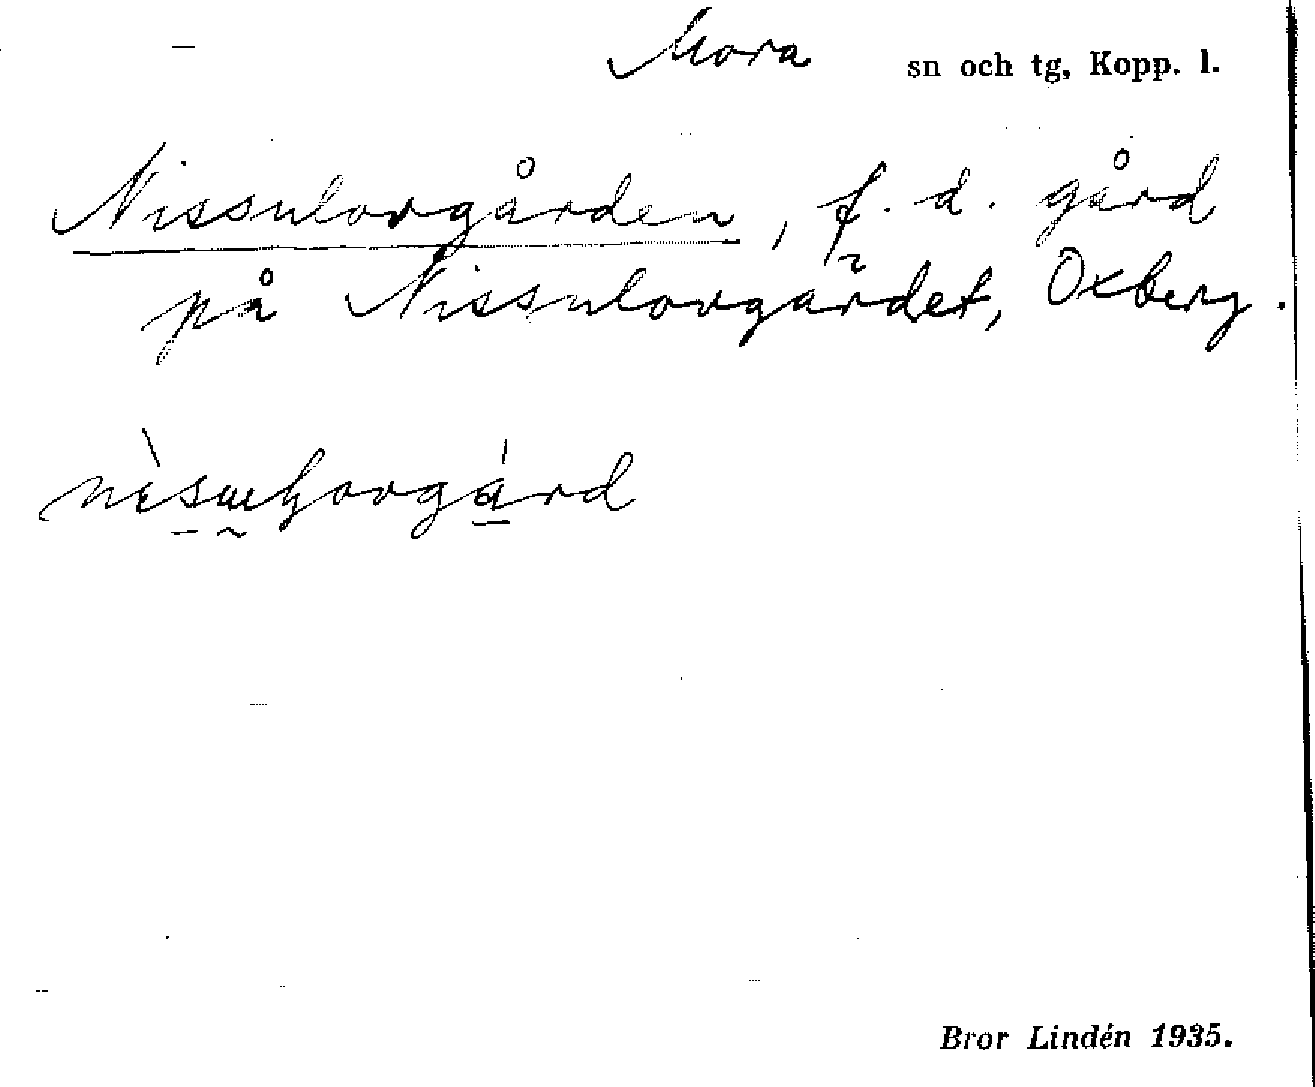 Mora sn och tg, Kopp. l.
Nissulovgården, f. d. gård
på Nissulovgärdet, Oxberg.
Bror Lindén 1935.